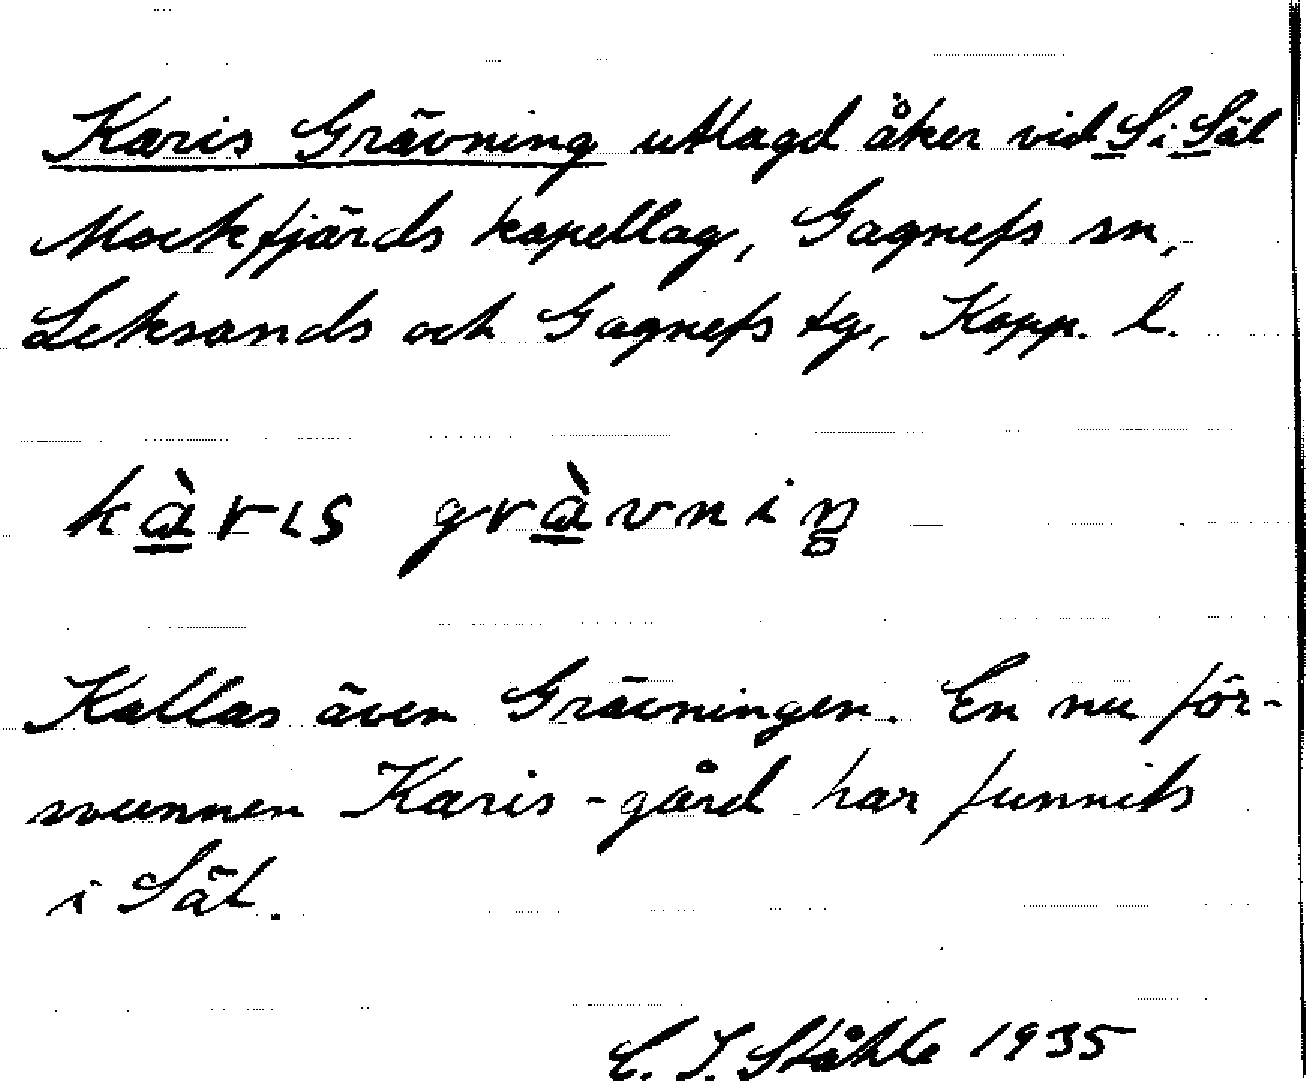 Karis Grävning utlagd åker vid S i Sät
Mockfjärds kapellag, Gagnefs sn,
Leksands och Gagnefs tg, Kopp. l.
kàrɩs gràvniŋ
Kallas även Grävningen. En nu för-
svunnen Karis-gård har funnits
i Sät.
C. I. Ståhle 1935